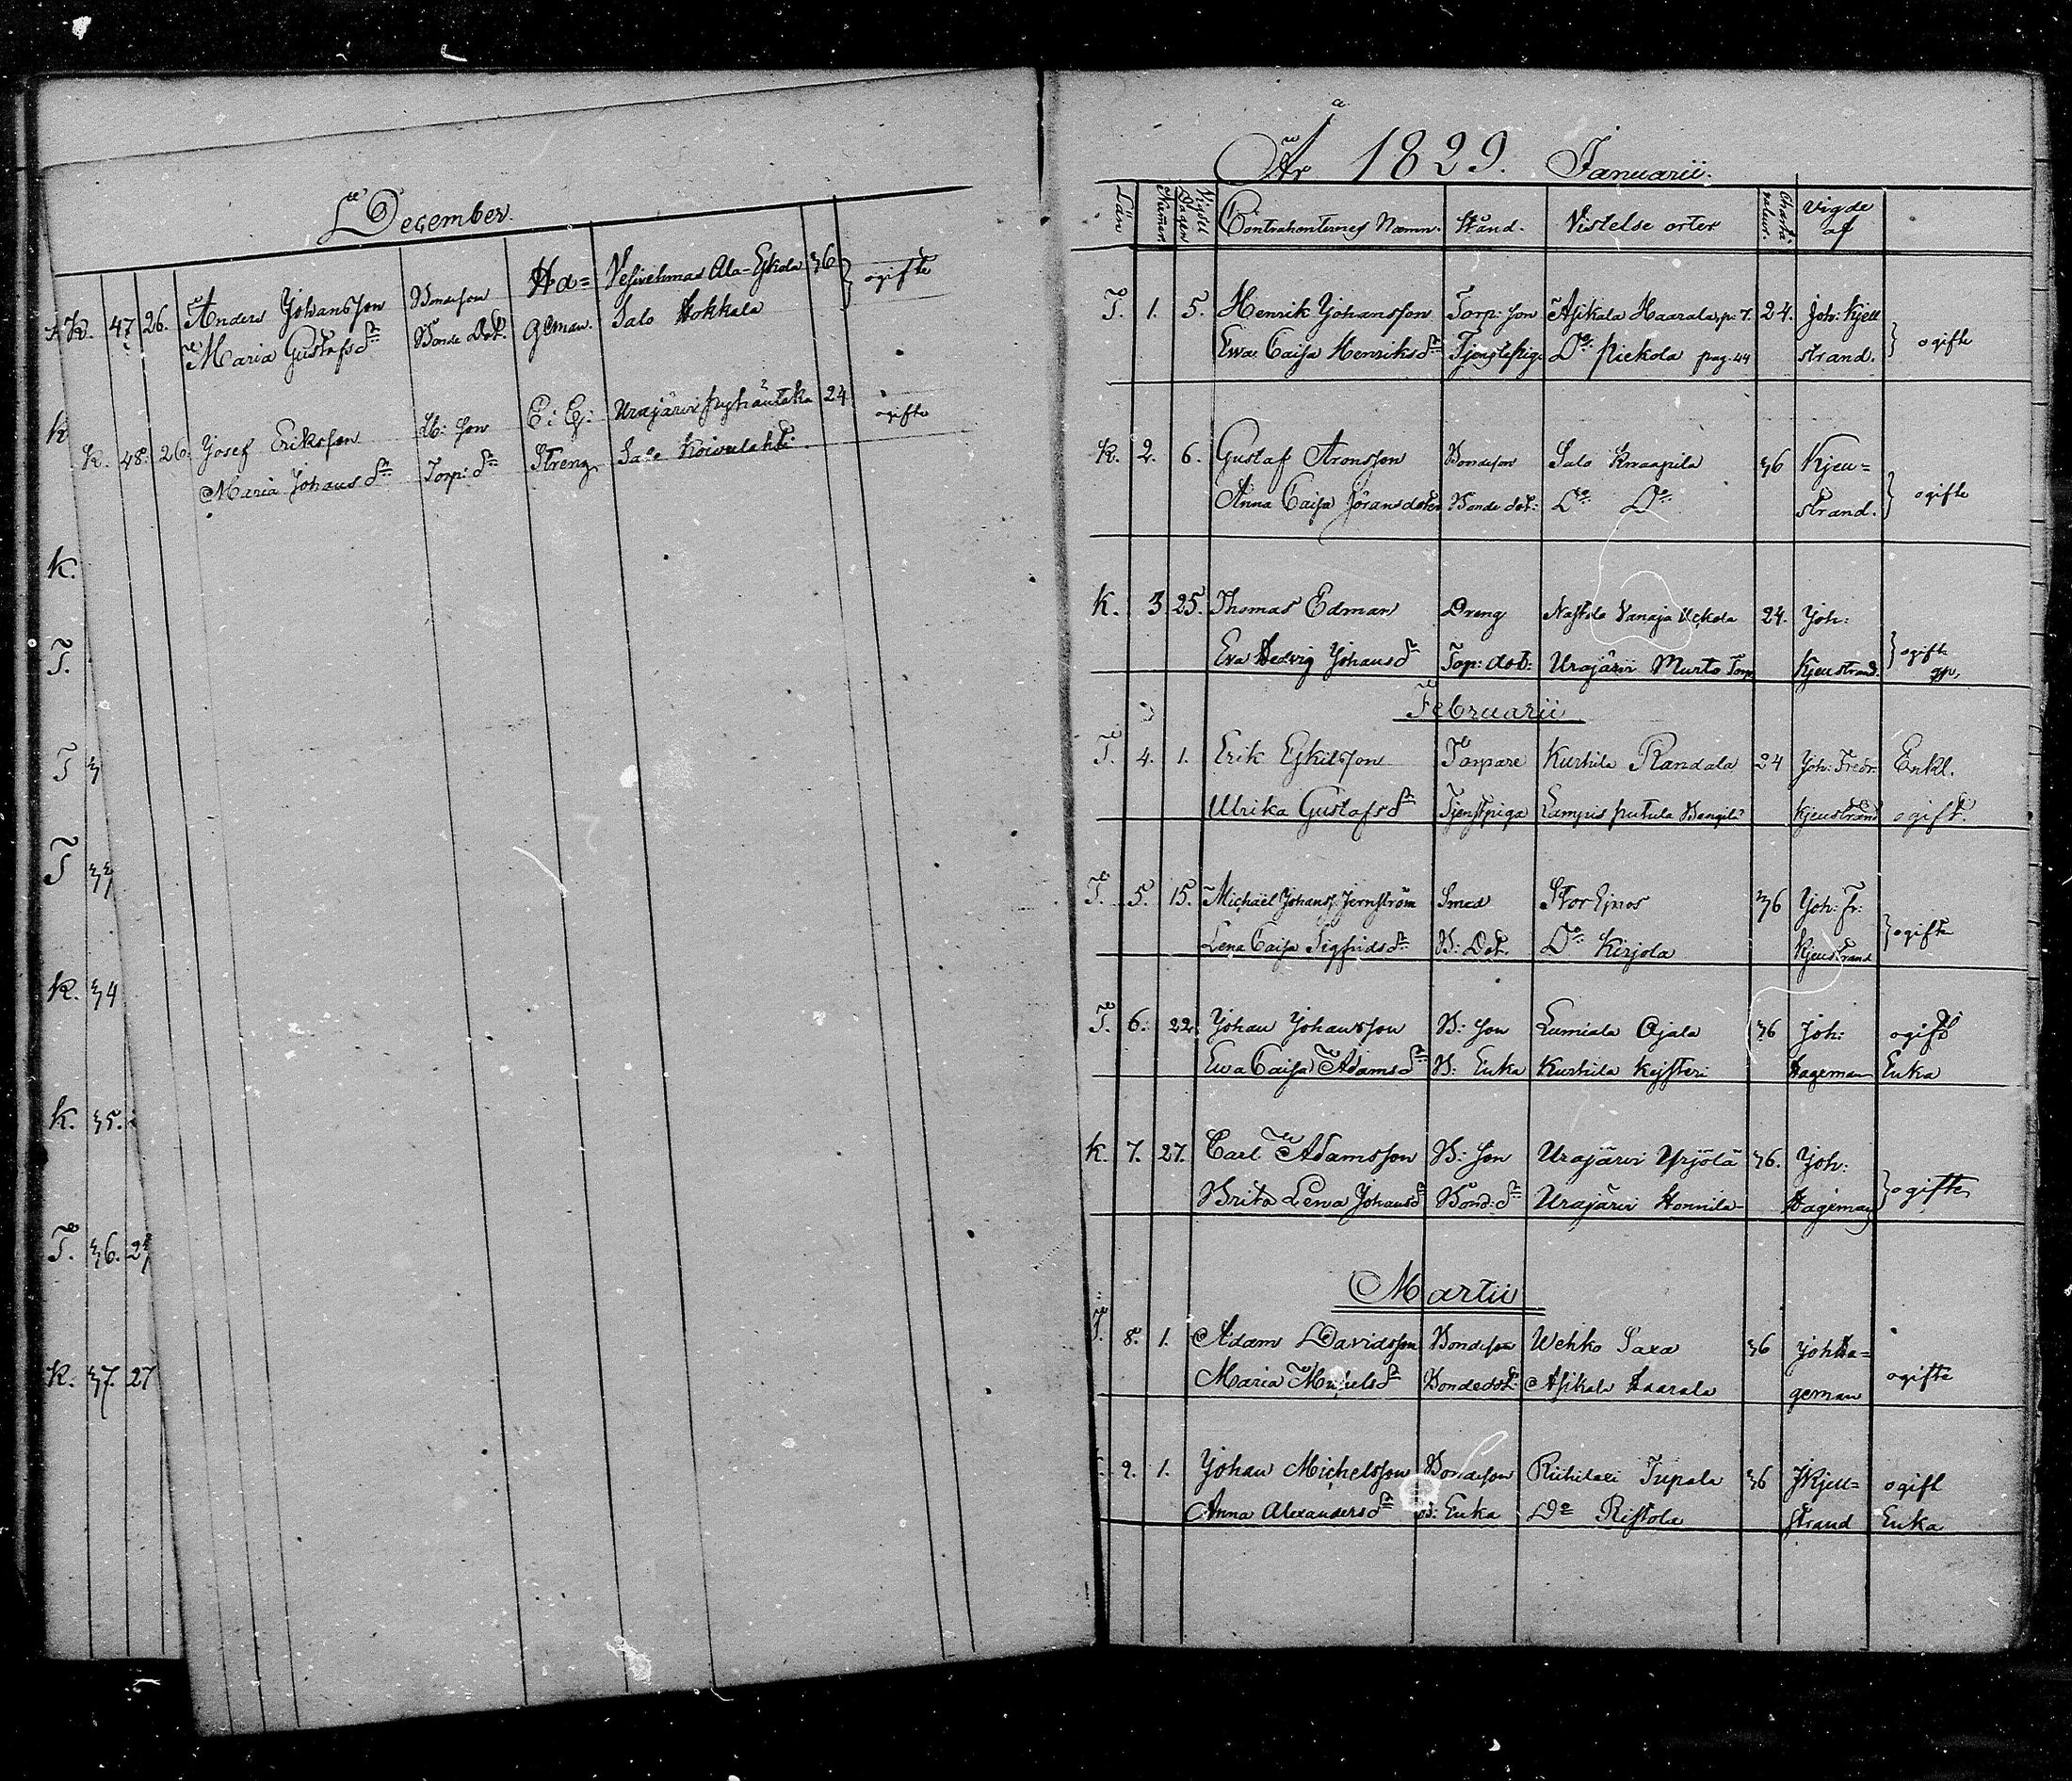 December.
K. 47. 26. Anders Johansson Bondeson Ha= Vesivehmas Ala-Eskola 36 } ogifte
Maria Gustafsdr Bonde Dot. geman. Salo Hokkala
K. 48. 26. Josef Eriksson Lb: Son E: G: Urajärvi 24 ogifte
Maria Johansdr Torp: dr Streng Salo Koivulahti
K
K.
T.
T 3
T 33
K. 34
K. 35.
T. 36. 27
K. 37. 27
År 1829. Januarii.
Län Numer Vigsel Dagen Contrahenternes Namn. Stånd. Vistelse orter Charta valuer. Vigde af
T. 1. 5. Henrik Johansson Torp: Son Asikala Haarala p: 7. 24. Joh: Kjell
Ewa Caisa Henriksdr Tjenstepig. Do: Piekola pag. 44 strand. } ogifte
K. 2. 6. Gustaf Aronsson Bondeson Salo Knaapila 36 Kjell=
Anna Caisa Jöransdotter Bonde dot: Do: Do: strand. } ogifte
K. 3 25. Thomas Edman Dreng Nastola Vanaja Uckola 24. Joh:
Eva Hedvig Johansdr Torp: dot: Urajärvi Murto Torp Kjellstrand. } ogifte
Februarii
T. 4. 1. Erik Eskilsson Torpare Kurhila Randala 24 Joh: Fredr: Enkl.
Ulrika Gustafsdr Tjenstpiga Lampis Putula Kjellstrand ogift.
T. 5. 15. Michael Johanss. Jernström Smed Stor Ejnos 36 Joh: Fr:
Lena Caisa Sigfridsdr B: Dot. Do: Kirjola Kjellstrand } ogifte
T. 6. 22. Johan Johansson B: Son Lumiala Ojala 36 Joh: ogift
Ewa Caisa Adamsdr B: Enka Kurhila Keisteri Hageman Enka
K. 7. 27. Carl Adamsson B: Son Urajärvi Yrjölä 36. Joh:
Brita Lena Johansdr Bond: dr Urajärvi Honnila Hageman } ogifte
Martii
T. 8. 1. Adam Davidsson Bondeson Wehko Saxa 36 Joh Ha=
Maria Michelsdr Bondedot: Asikala Haarala geman ogifte
9. 1. Johan Michelsson Bondeson Riihilax Tupala 36 J Kjell= ogift
Anna Alexandersdr B: Enka Do Ristola strand Enka